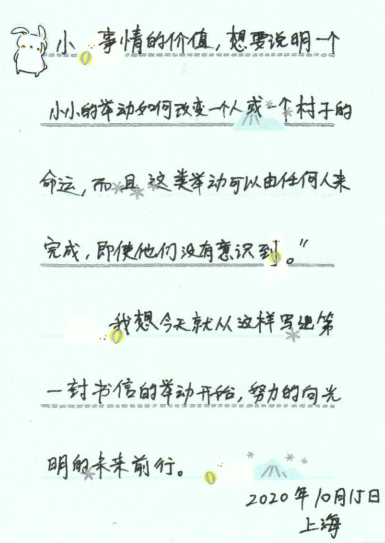 小 事情的价值，想要说明一个
小小的举动如何改变一个人或一个村子的
命运，而且这类举动可以由任何人来
完成，即使他们没有意识到。”
我想今天就从这样写出第
一封书信的举动开始，努力的向光
明的未来前行。
2020年10月15日
上海